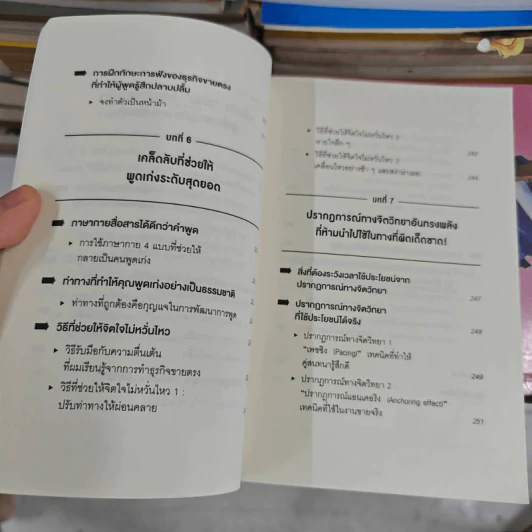 การฝึกทักษะการฟังของธุรกิจขายตรง
ที่ทำให้ผู้พูดรู้สึกปลาบปลื้ม
▸ จงทำตัวเป็นหน้าม้า
บทที่ 6
เคล็ดลับที่ช่วยให้
พูดเก่งระดับสุดยอด
ภาษากายสื่อสารได้ดีกว่าคำพูด
▸ การใช้ภาษากาย 4 แบบที่ช่วยให้
กลายเป็นคนพูดเก่ง
ท่าทางที่ทำให้คุณพูดเก่งอย่างเป็นธรรมชาติ
▸ ท่าทางที่ถูกต้องคือกุญแจในการพัฒนาการพูด
วิธีที่ช่วยให้จิตใจไม่หวั่นไหว
▸ วิธีรับมือกับความตื่นเต้น
ที่ผมเรียนรู้จากการทำธุรกิจขายตรง
▸ วิธีที่ช่วยให้จิตใจไม่หวั่นไหว 1 :
ปรับท่าทางให้ผ่อนคลาย
▸ วิธีที่ช่วยให้จิตใจไม่หวั่นไหว 2
หายใจลึก ๆ 243
▸ วิธีที่ช่วยให้จิตใจไม่หวั่นไหว 3
เคลื่อนไหวอย่างช้า ๆ และสง่าผ่าเผย 244
บทที่ 7
ปรากฏการณ์ทางจิตวิทยาอันทรงพลัง
ที่ห้ามนำไปใช้ในทางที่ผิดเด็ดขาด!
สิ่งที่ต้องระวังเวลาใช้ประโยชน์จาก
ปรากฏการณ์ทางจิตวิทยา 247
ปรากฏการณ์ทางจิตวิทยา
ที่ใช้ประโยชน์ได้จริง 249
▸ ปรากฏการณ์ทางจิตวิทยา 1
"เพซซิง (Pacing)" เทคนิคที่ทำให้
คู่สนทนารู้สึกดี 249
▸ ปรากฏการณ์ทางจิตวิทยา 2
"ปรากฏการณ์แอนเคอริง (Anchoring effect)"
เทคนิคที่ใช้ในงานขายจริง 251